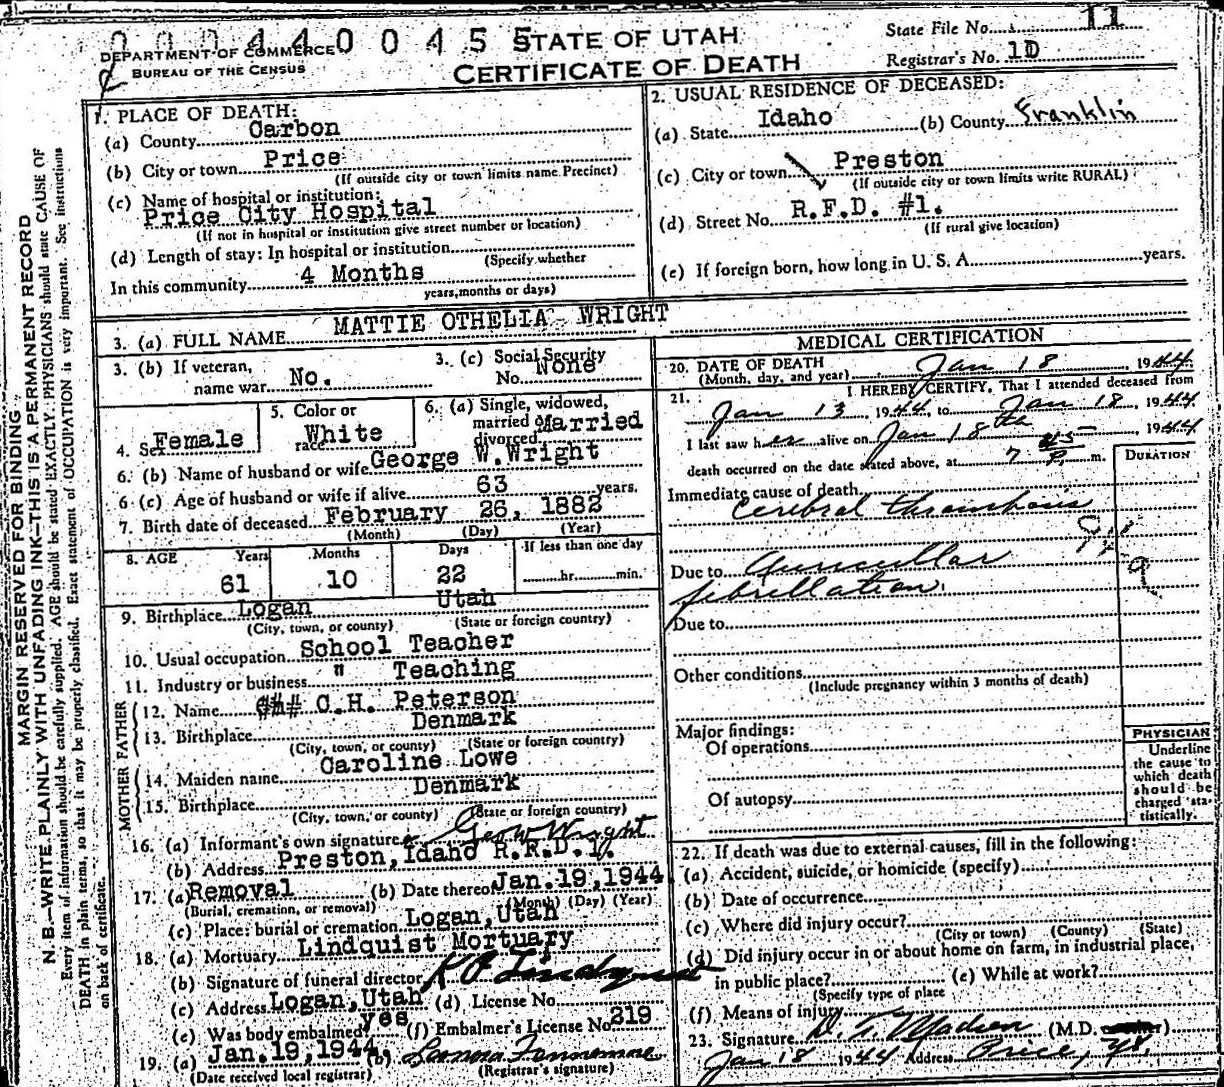 STATE OF UTAH
0 0 0 4 4 0 0 4 5 5
DEPARTMENT OF COMMERCE
BUREAU OF THE CENSUS
CERTIFICATE OF DEATH
State File No. 11
Registrar's No. 1D
MARGIN RESERVED FOR BINDING
N. B.—WRITE PLAINLY WITH UNFADING INK—THIS IS A PERMANENT RECORD
Every item of information should be carefully supplied. AGE should be stated EXACTLY. PHYSICIANS should state CAUSE OF
DEATH in plain terms, so that it may be properly classified. Exact statement of OCCUPATION is very important. See instructions
on back of certificate.
1. PLACE OF DEATH:
(a) County Carbon
(b) City or town Price
(If outside city or town limits name Precinct)
(c) Name of hospital or institution:
Price City Hospital
(If not in hospital or institution give street number or location)
(d) Length of stay: In hospital or institution
(Specify whether
In this community 4 Months
years, months or days)
2. USUAL RESIDENCE OF DECEASED:
(a) State Idaho (b) County Franklin
(c) City or town Preston
(If outside city or town limits write RURAL)
(d) Street No. R.F.D. #1.
(If rural give location)
(e) If foreign born, how long in U. S. A. years.
3. (a) FULL NAME MATTIE OTHELIA WRIGHT
3. (b) If veteran,
name war No.
3. (c) Social Security
No. None
4. Sex Female
5. Color or
race White
6. (a) Single, widowed,
married or
divorced Married
6. (b) Name of husband or wife George W. Wright
6 (c) Age of husband or wife if alive 63 years.
7. Birth date of deceased February 26, 1882
(Month) (Day) (Year)
8. AGE Years Months Days If less than one day
61 10 22 hr. min.
9. Birthplace Logan Utah
(City, town, or county) (State or foreign country)
10. Usual occupation School Teacher
11. Industry or business " Teaching
FATHER
12. Name C.H. Peterson
13. Birthplace Denmark
(City, town, or county) (State or foreign country)
MOTHER
14. Maiden name Caroline Lowe
15. Birthplace Denmark
(City, town, or county) (State or foreign country)
16. (a) Informant's own signature Geo W Wright
(b) Address Preston, Idaho R.R.D.1.
17. (a) Removal (b) Date thereof Jan.19,1944
(Burial, cremation, or removal) (Month) (Day) (Year)
(c) Place: burial or cremation Logan, Utah
18. (a) Mortuary Lindquist Mortuary
(b) Signature of funeral director Lindquist
(c) Address Logan, Utah (d) License No.
(e) Was body embalmed yes (f) Embalmer's License No. 219
19. (a) Jan.19,1944, (b)
(Date received local registrar) (Registrar's signature)
MEDICAL CERTIFICATION
20. DATE OF DEATH Jan 18, 1944
(Month, day, and year)
21. I HEREBY CERTIFY, That I attended deceased from
Jan 13, 1944, to Jan 18, 1944
I last saw her alive on Jan 18th, 1944
death occurred on the date stated above, at 7 45 P. m.
DURATION
Immediate cause of death
Cerebral thrombosis
Due to Auricular
fibrellation.
Due to
Other conditions
(Include pregnancy within 3 months of death)
Major findings:
Of operations
Of autopsy
PHYSICIAN
Underline
the cause to
which death
should be
charged sta-
tistically.
22. If death was due to external causes, fill in the following:
(a) Accident, suicide, or homicide (specify)
(b) Date of occurrence
(c) Where did injury occur?
(City or town) (County) (State)
(d) Did injury occur in or about home on farm, in industrial place,
in public place? (e) While at work?
(Specify type of place
(f) Means of injury
23. Signature Madsen (M.D. )
Jan 18 1944 Address Price, Ut.